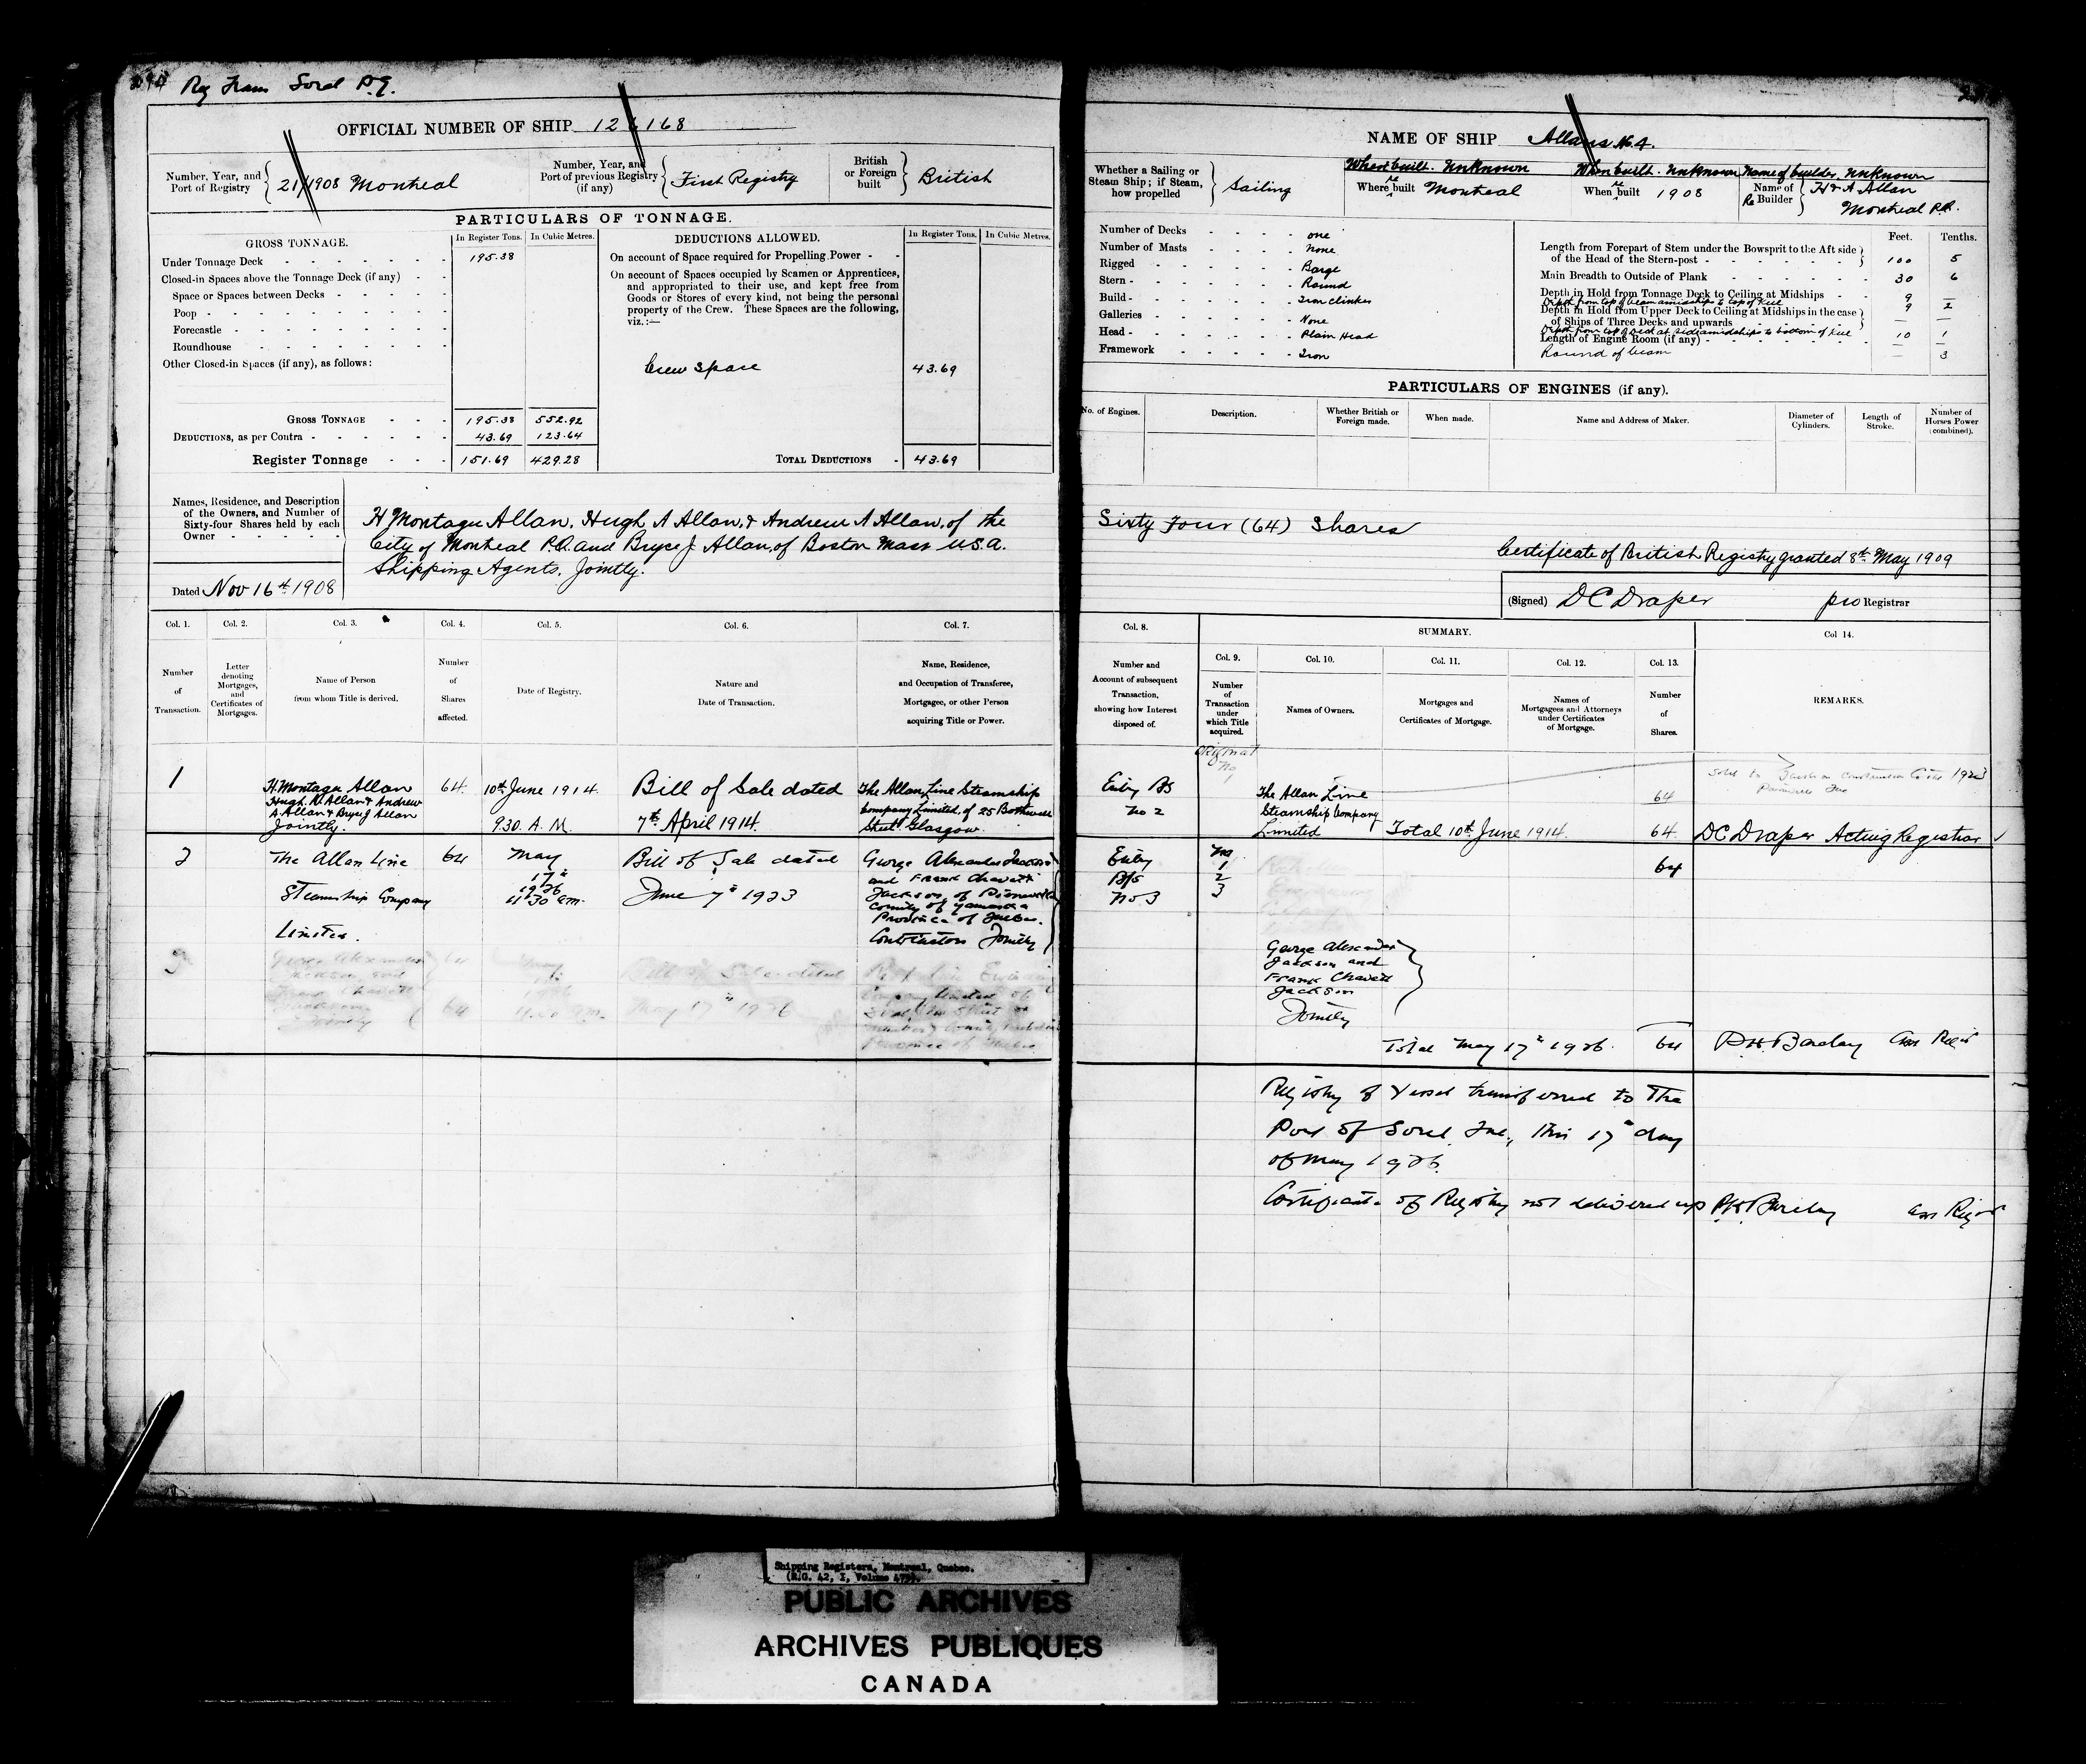 Reg Trans Sorel P.Q.
OFFICIAL NUMBER OF SHIP 126168
Number, Year, and Port of Registry 21/1908 Montreal
Number, Year, and Port of previous Registry (if any) First Registry
British or Foreign built British
PARTICULARS OF TONNAGE.
GROSS TONNAGE. In Register Tons. In Cubic Metres.
Under Tonnage Deck 195.38
Closed-in Spaces above the Tonnage Deck (if any)
Space or Spaces between Decks
Poop
Forecastle
Roundhouse
Other Closed-in Spaces (if any), as follows:
GROSS TONNAGE 195.38 552.92
DEDUCTIONS, as per Contra 43.69 123.64
Register Tonnage 151.69 429.28
DEDUCTIONS ALLOWED. In Register Tons. In Cubic Metres.
On account of Space required for Propelling Power
On account of Spaces occupied by Seamen or Apprentices,
and appropriated to their use, and kept free from
Goods or Stores of every kind, not being the personal
property of the Crew. These Spaces are the following,
viz.:—
Crew Space 43.69
TOTAL DEDUCTIONS 43.69
Names, Residence, and Description
of the Owners, and Number of
Sixty-four Shares held by each
Owner
H Montagu Allan, Hugh A Allan, & Andrew A Allan, of the
City of Montreal P.Q. and Bryce J Allan, of Boston Mass U.S.A.
Shipping Agents. Jointly.
Dated Nov 16th 1908
Col. 1. Col. 2. Col. 3. Col. 4. Col. 5. Col. 6. Col. 7.
Number of Transaction.
Letter denoting Mortgages, and Certificates of Mortgages.
Name of Person from whom Title is derived.
Number of Shares affected.
Date of Registry.
Nature and Date of Transaction.
Name, Residence, and Occupation of Transferee, Mortgagee, or other Person acquiring Title or Power.
1
H. Montagu Allan
Hugh A Allan & Andrew
A. Allan & Bryce J Allan
Jointly.
64.
10th June 1914.
9.30. A. M.
Bill of Sale dated
7th April 1914.
The Allan Line Steamship
Company Limited, of 25 Bothwell
Street Glasgow.
2
The Allan Line
Steamship Company
Limited.
64
May
17th
1926
11 30 am.
Bill of Sale dated
June 7th 1923
George Alexander Jackson
and Frank Chavett
Jackson, of
County of Yamaska
Province of Quebec.
Contractors Jointly
3
George Alexander
Jackson, and
Frank Chavett
Jackson
Jointly
64
May
17
1926
Bill of Sale dated
May 17th 1926
Company Limited of
Province of Quebec
NAME OF SHIP Allans No. 4.
Whether a Sailing or Steam Ship; if Steam, how propelled Sailing
Where built. Unknown When built. Unknown Name of builder. Unknown
Where Re built Montreal
When Re built 1908
Name of Re Builder H & A Allan
Montreal P.Q.
Number of Decks one
Number of Masts None
Rigged Barge
Stern Round
Build Iron Clinker
Galleries None
Head Plain Head
Framework Iron
Feet. Tenths.
Length from Forepart of Stem under the Bowsprit to the Aft side of the Head of the Stern-post 100 5
Main Breadth to Outside of Plank 30 6
Depth in Hold from Tonnage Deck to Ceiling at Midships 9 —
Depth from top of beam amidships to top of Keel 9 2
Depth in Hold from Upper Deck to Ceiling at Midships in the case of Ships of Three Decks and upwards — —
Depth from top of deck at side amidships to bottom of Keel 10 1
Length of Engine Room (if any) — —
Round of beam — 3
PARTICULARS OF ENGINES (if any).
No. of Engines. Description. Whether British or Foreign made. When made. Name and Address of Maker. Diameter of Cylinders. Length of Stroke. Number of Horses Power (combined).
Sixty Four (64) Shares
Certificate of British Registry granted 8th May 1909
(Signed) D C Draper pro Registrar
Col. 8. SUMMARY. Col 14.
Col. 9. Col. 10. Col. 11. Col. 12. Col. 13.
Number and Account of subsequent Transaction, showing how Interest disposed of.
Number of Transaction under which Title acquired.
Names of Owners.
Mortgages and Certificates of Mortgage.
Names of Mortgagees and Attorneys under Certificates of Mortgage.
Number of Shares.
REMARKS.
Original
No
1
Entry BS
No 2
The Allan Line
Steamship Company
Limited
Total 10th June 1914.
64
64.
Sold to Jackson Construction Co 1923
DC Draper Acting Registrar
Entry
B/S
No 3
No
1
2
3
64
George Alexander
Jackson and
Frank Chavett
Jackson
Jointly
Total May 17th 1926. 64
P.H. Barclay Ass Reg'r
Registry of Vessel transferred to The
Port of Sorel, Que., this 17th day
of May 1926.
Certificate of Registry not delivered up P.H. Barclay Ass Reg'r
Shipping Registers, Montreal, Quebec.
PUBLIC ARCHIVES
ARCHIVES PUBLIQUES
CANADA